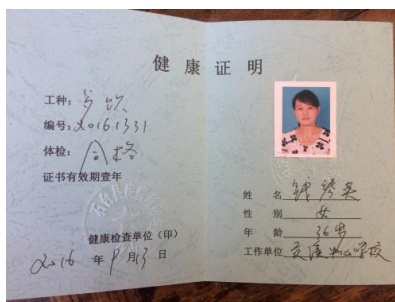 健康证明
工种：
编号：20161331
体检：合格
证书有效期壹年
健康检查单位（印）
2016 年 9 月 13 日
姓 名
性 别 女
年 龄 36岁
工作单位 中心学校